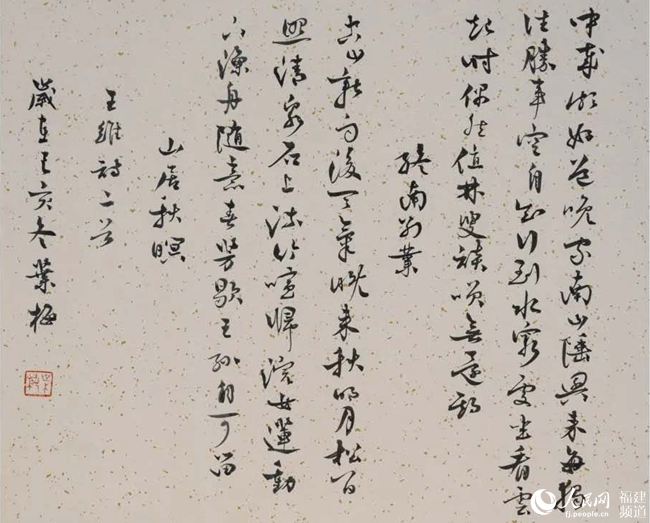 中歲頗好道晚家南山陲興來每獨
往勝事空自知行到水窮處坐看雲
起時偶然值林叟談笑無還期
終南別業
空山新雨後天氣晚來秋明月松間
照清泉石上流竹喧歸浣女蓮動
下漁舟隨意春芳歇王孫自可留
山居秋暝
王維詩二首
歲在己亥冬葉梅
人民网 福建频道
fj.people.cn